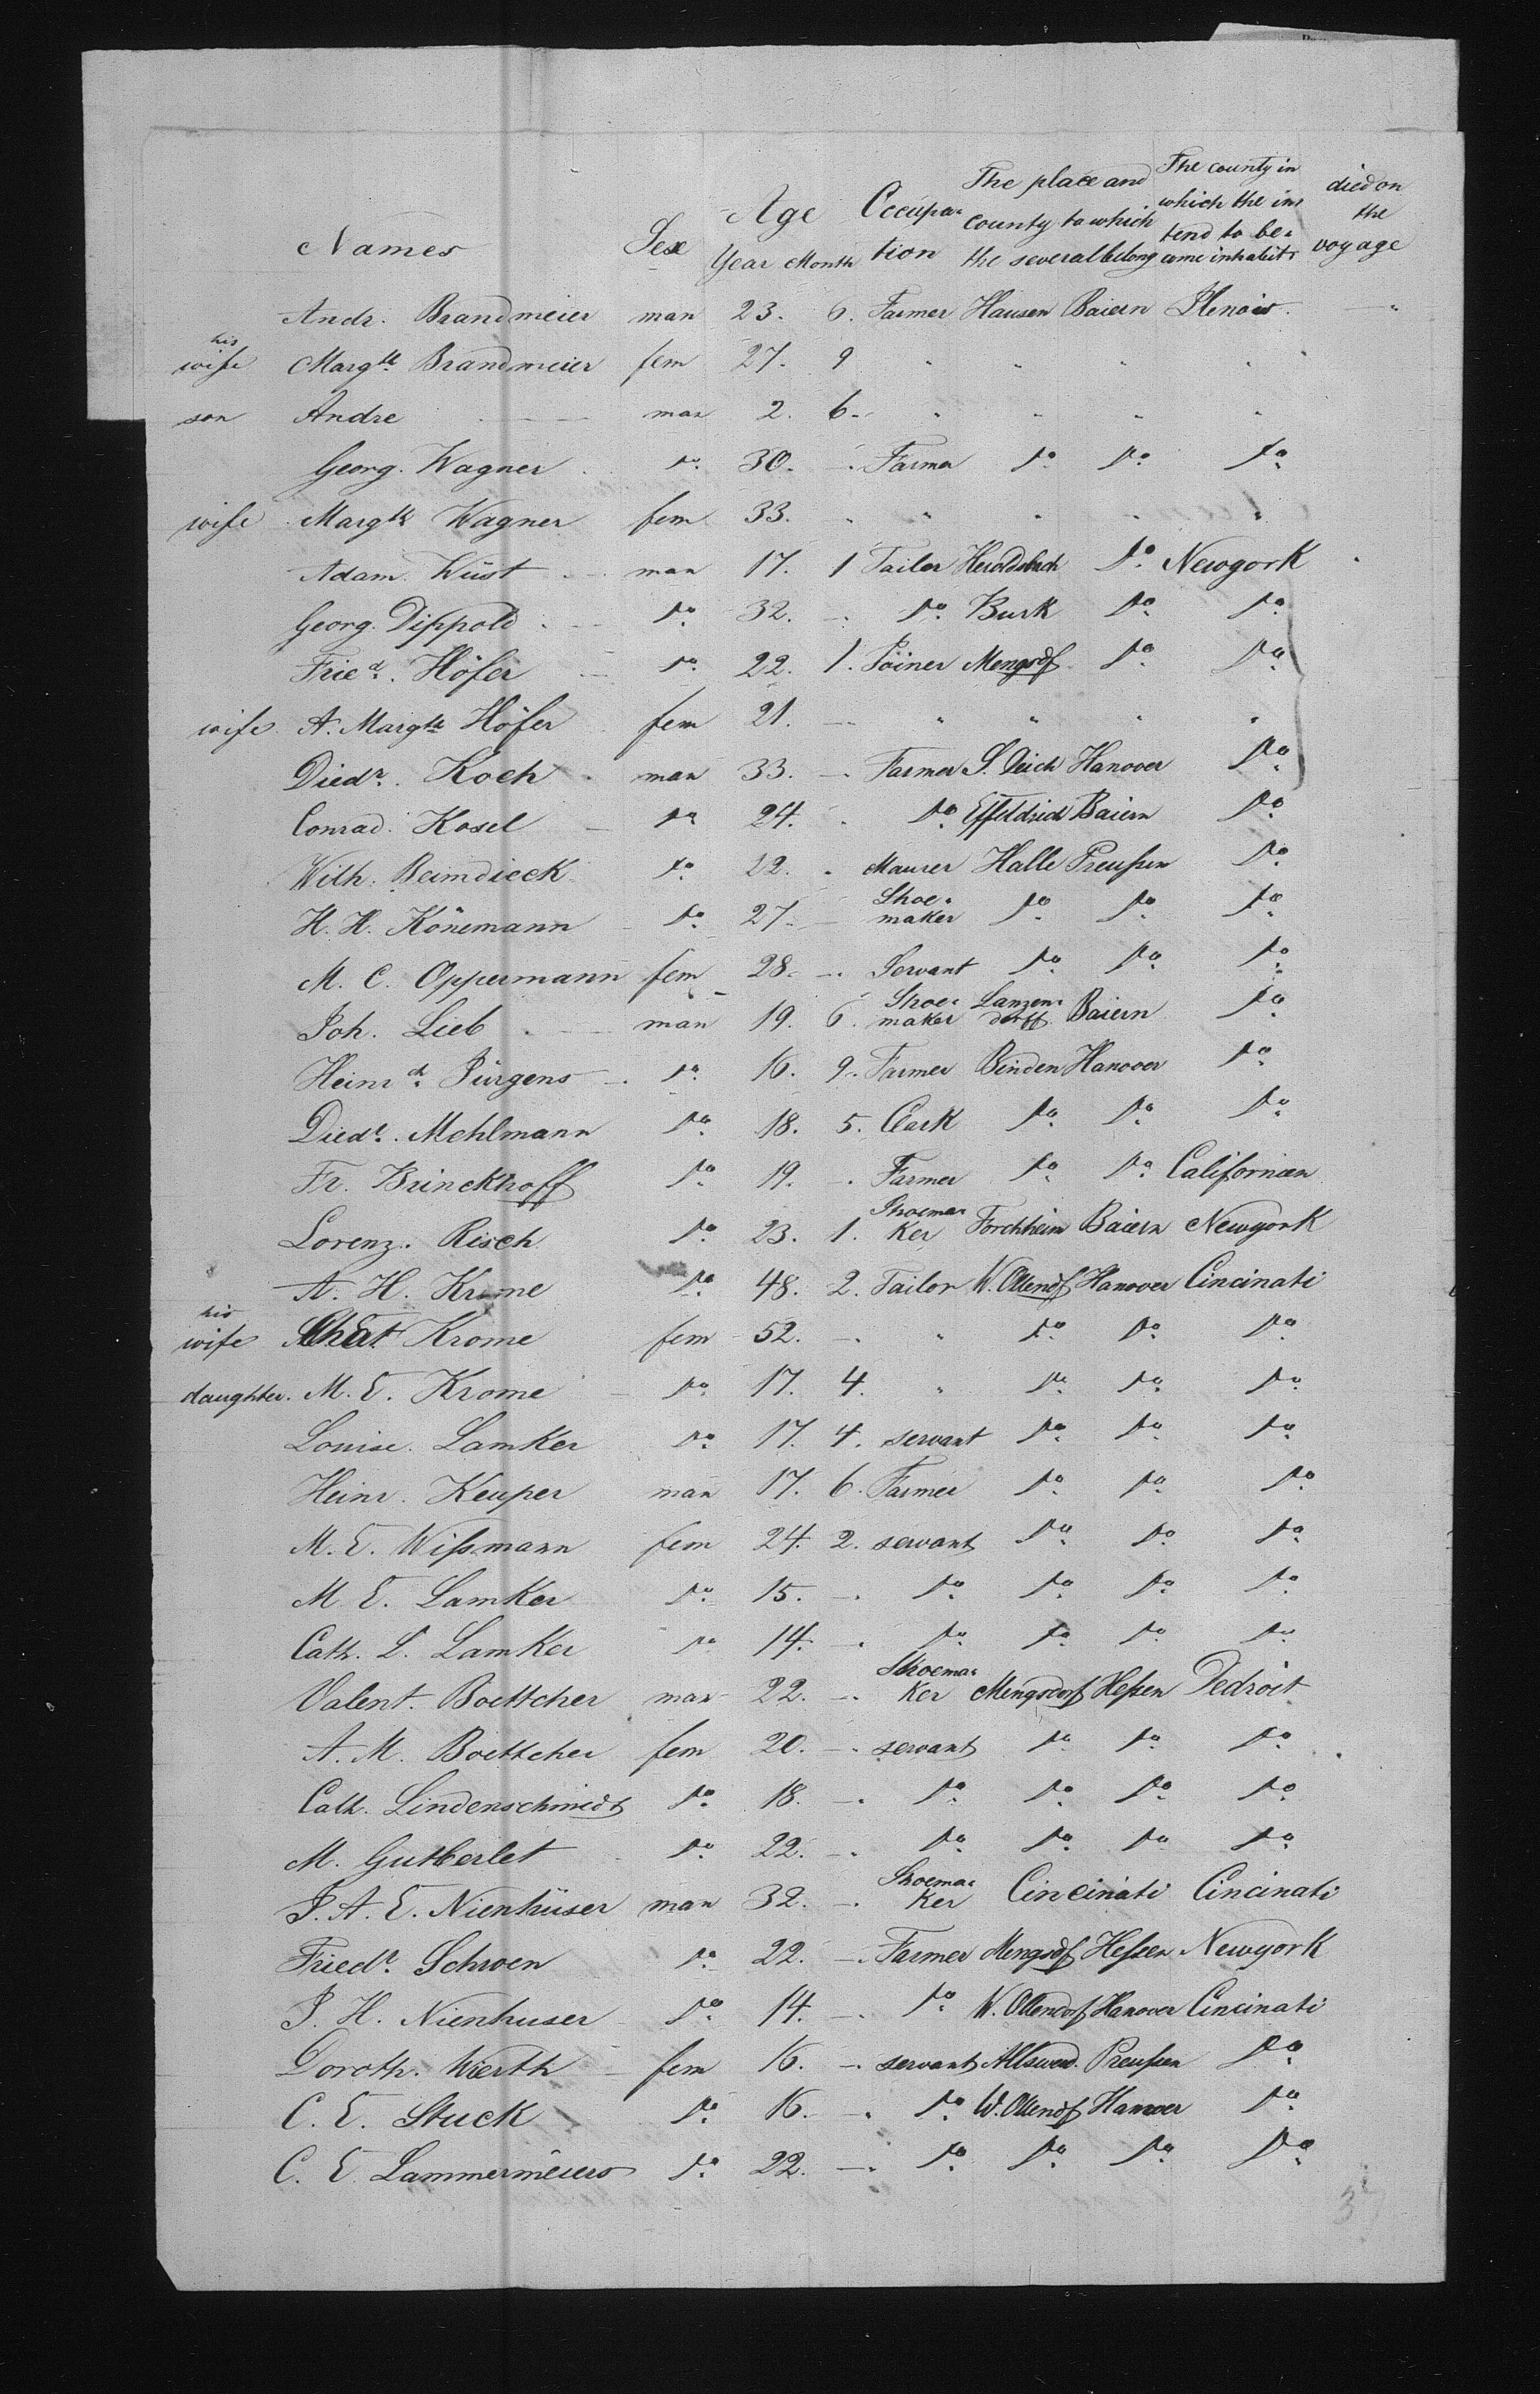 Names Sex Age Year Month Occupa- tion The place and county to which the several belong The county in which the in- tend to be- come inhabit. died on the voyage
Andr. Brandmeier man 23. 6. Farmer Hausen Baiern Illenois. "
his wife Margth. Brandmeier fem 27. 9 " " " "
son Andre man 2. 6. " " " "
Georg. Wagner do. 30. -. Farmer do. do. do.
wife Margth Wagner fem 33. " " " " "
Adam. Wüst man 17. 1 Tailor Heroldsbach do. Newyork
Georg. Dippold do. 32. -. do. Burk do. do.
Fried. Höfer do. 22. 1. Joiner Mengsdf do. do.
wife A. Margth Höfer fem 21. - " " " "
Diedr. Koch man 33. -. Farmer S. Deich Hanover do.
Conrad. Kosel do. 24. . do. Effeldrich Baiern do.
Wilh. Beimdieck do. 22. . Maurer Halle Preußen do.
H. H. Könemann do. 27. - Shoe- maker do. do. do.
M. C. Oppermann fem 28. -. Servant do. do. do.
Joh. Lieb man 19. 6. Shoe- maker Lanzen- dorff Baiern do.
Heinrch. Jürgens do. 16. 9. Farmer Binden Hanover do.
Diedr. Mehlmann do. 18. 5. Clark do. do. do.
Fr. Brinckhoff do. 19. -. Farmer do. do. Californien
Lorenz. Risch do. 23. 1. Shoema- ker Forchheim Baiern Newyork
A. H. Krome do. 48. 2. Tailor W. Ollendf Hanover Cincinati
his wife Krome fem 52. -. " do. do. do.
daughter. M. E. Krome do. 17. 4. " do. do. do.
Louise. Lamker do. 17. 4. servant do. do. do.
Heinr. Keuper man 17. 6. Farmer do. do. do.
M. E. Wißmann fem 24. 2. servant do. do. do.
M. E. Lamker do. 15. -. do. do. do. do.
Cath. L. Lamker do. 14. -. do. do. do. do.
Valent. Boettcher man 22. -. Shoema- ker Mengsdorf Heßen Dedroit
A. M. Boettcher fem 20. -. servant do. do. do.
Cath. Lindenschmidt do. 18. -. do. do. do. do.
M. Gutberlet do. 22. -. do. do. do. do.
J. A. E. Nienhüser man 32. -. Shoema- ker Cincinati Cincinati
Friedr. Schwen do. 22. -. Farmer Mengsdf Heßen Newyork
J. H. Nienhuser do. 14. -. do. W. Ollendorf Hanover Cincinati
Doroth. Wierth fem 16. -. servant Preußen do.
C. E. Stuck do. 16. -. do. W. Ollendf Hanover do.
C. E. Lammermeiers do. 22. -. do. do. do. do.